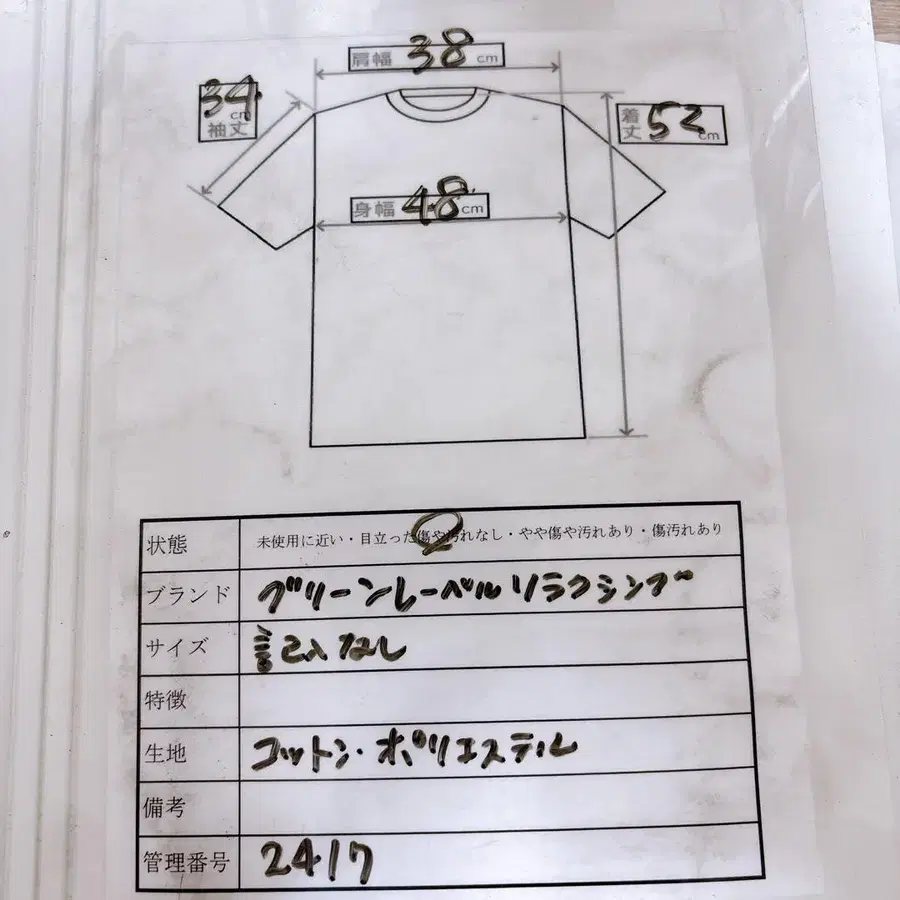 肩幅 38 cm
34 cm
袖丈
着丈 52 cm
身幅 48 cm
状態 未使用に近い・目立った傷や汚れなし・やや傷や汚れあり・傷汚れあり
ブランド グリーンレーベルリラクシング
サイズ 記入なし
特徴
生地 コットン・ポリエステル
備考
管理番号 2417